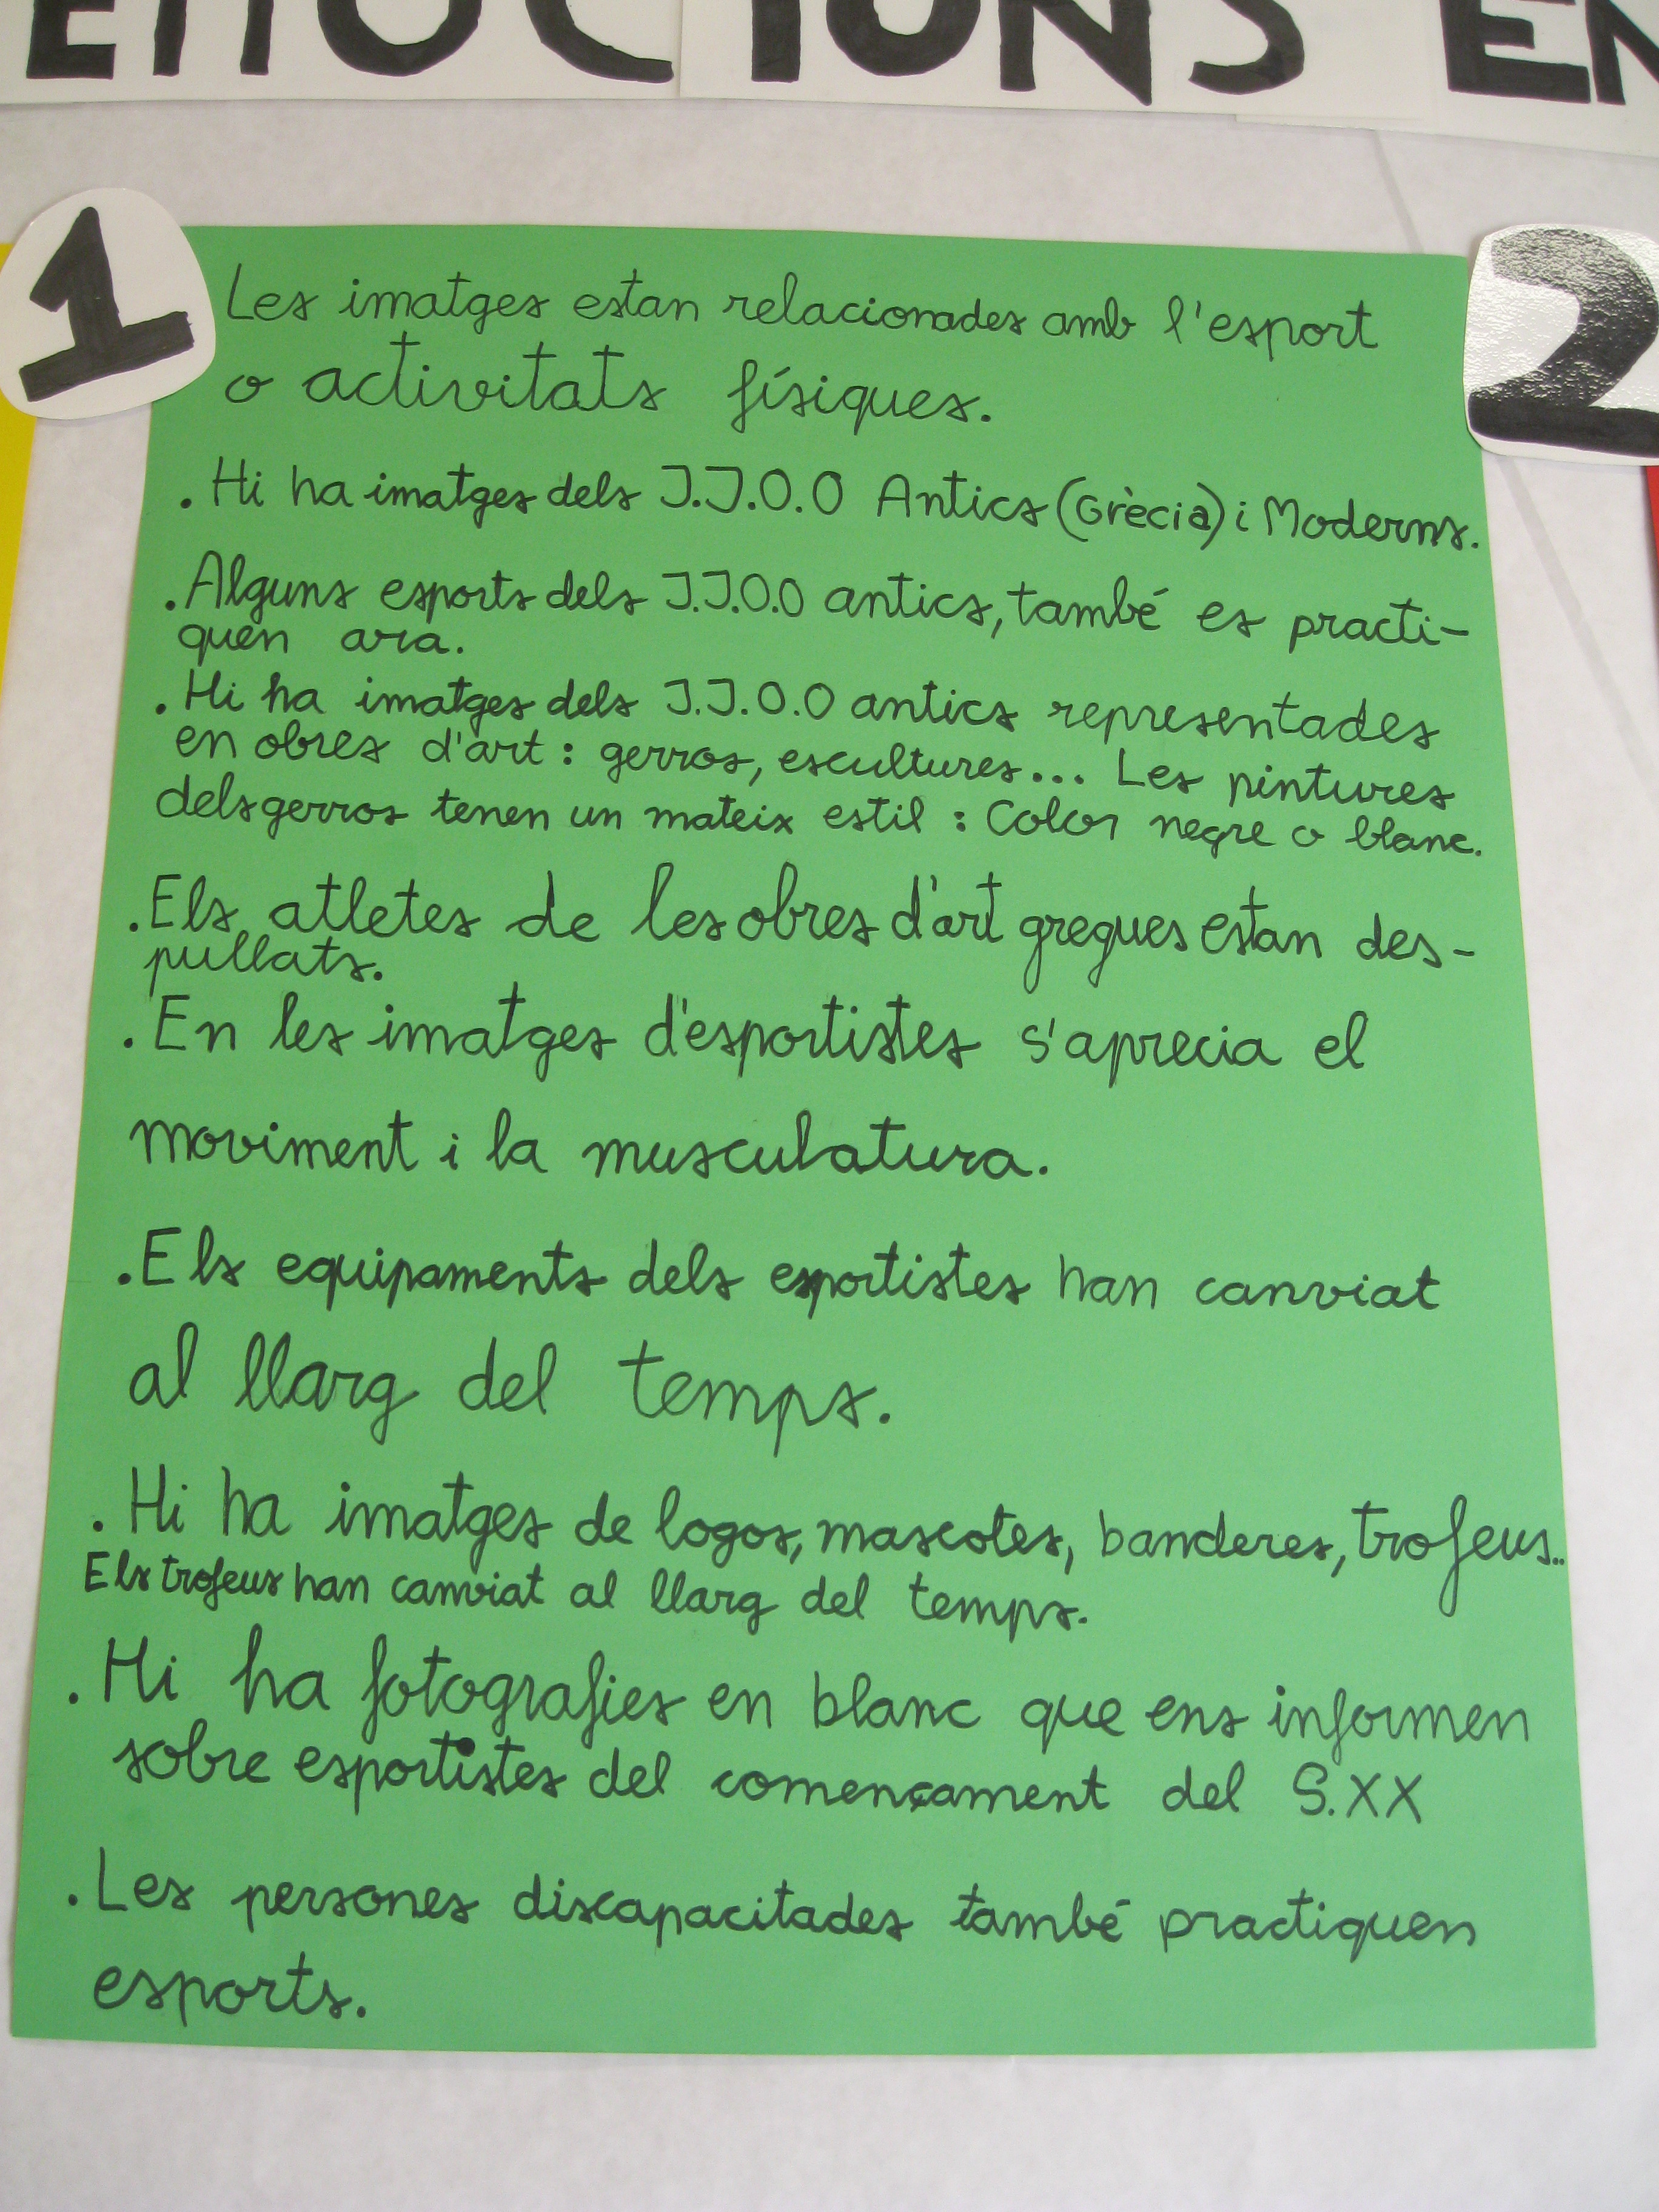 EMOCIONS EN
1
2
Les imatges estan relacionades amb l'esport
o activitats físiques.
. Hi ha imatges dels J.J.O.O Antics (Grècia) i Moderns.
. Alguns esports dels J.J.O.O antics, també es practi-
quen ara.
. Hi ha imatges dels J.J.O.O antics representades
en obres d'art : gerros, escultures... Les pintures
dels gerros tenen un mateix estil : Color negre o blanc.
. Els atletes de les obres d'art gregues estan des-
pullats.
. En les imatges d'esportistes s'aprecia el
moviment i la musculatura.
. Els equipaments dels esportistes han canviat
al llarg del temps.
. Hi ha imatges de logos, mascotes, banderes, trofeus..
Els trofeus han canviat al llarg del temps.
. Hi ha fotografies en blanc que ens informen
sobre esportistes del començament del S.XX
. Les persones discapacitades també practiquen
esports.